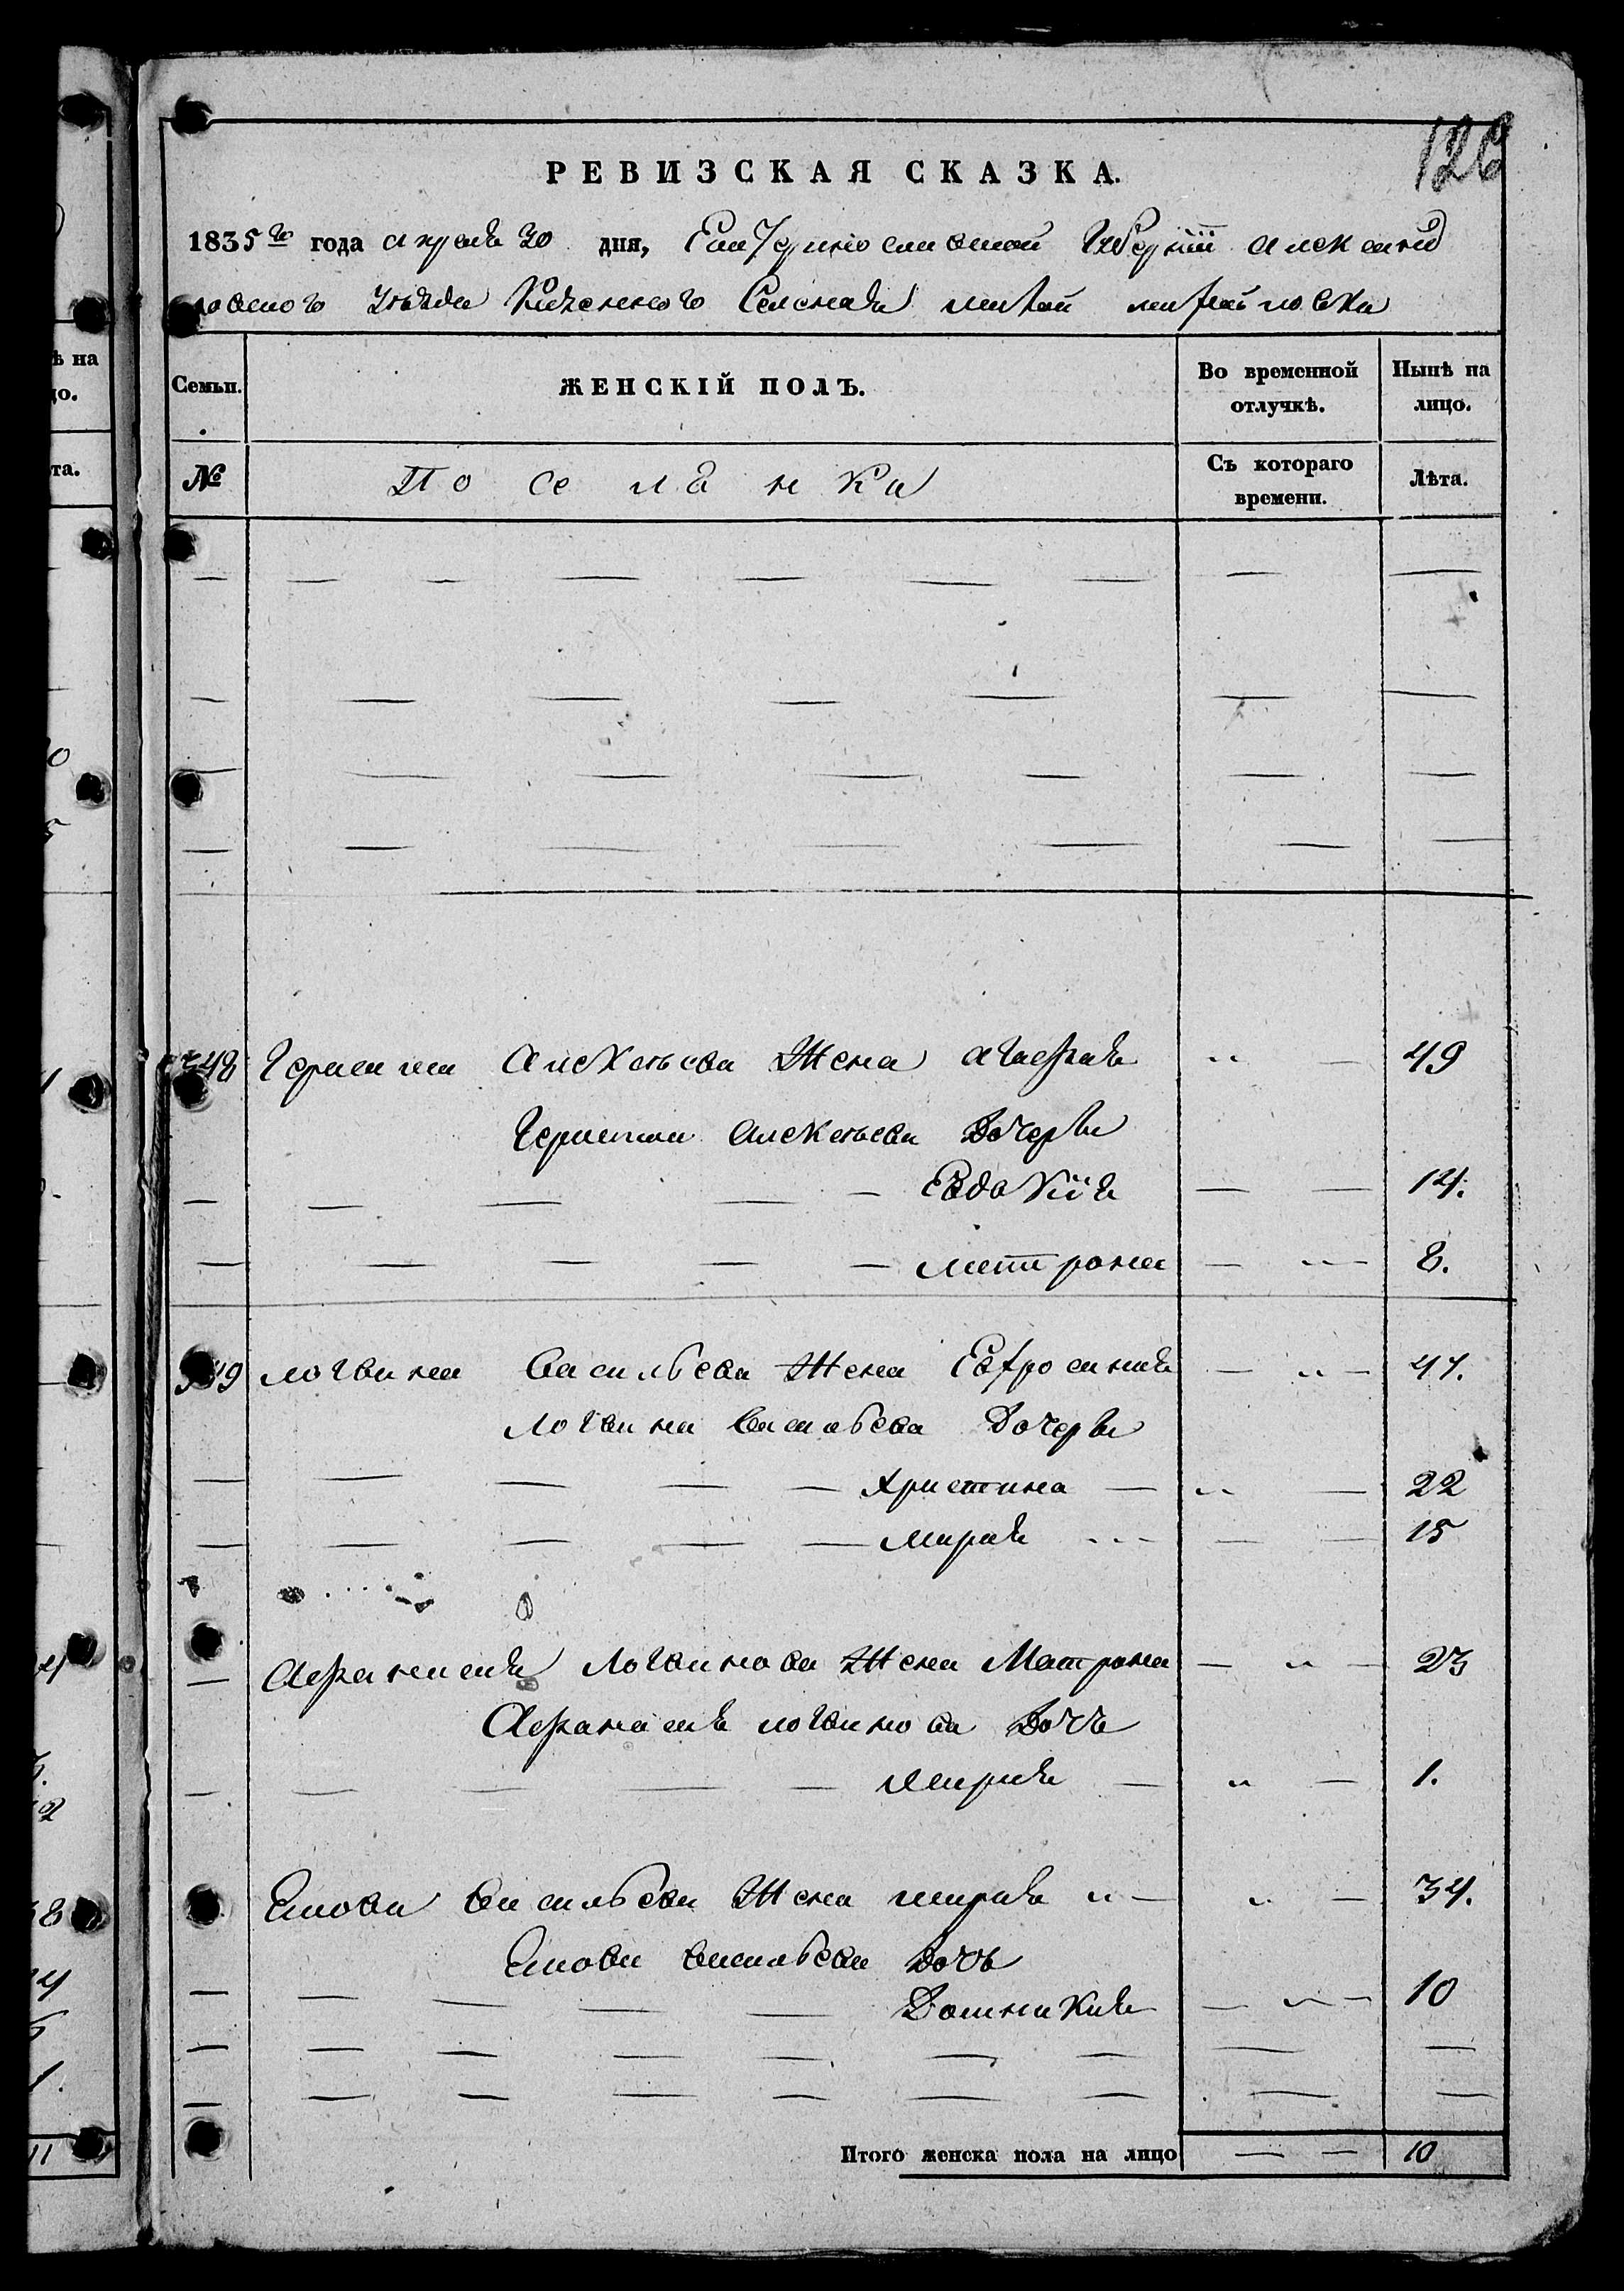 126
РЕВИЗСКАЯ СКАЗКА.
1835го года апреля 20 дня, Екатеринославской Губернии Александ
ровского Уезда Казенного Селения
Семьи. ЖЕНСКІЙ ПОЛЪ. Во временной отлучкѣ. Нынѣ на лицо.
№ Поселянки Съ котораго времени. Лѣта.
348 Герасима Алексеева Жена Агафия 49
Герасима Алексеева Дочери
Евдокия 14.
Матрона 8.
349 Логвина Васильева Жена Евфросиния 47.
Логвина Васильева Дочери
Христина 22
Мария 15
Афанасия Логвинова Жена Матрона 23
Афанасия Логвинова Дочь
Мария 1.
Васильева Жена Мария 34.
Васильева Дочь
Домникия 10
Итого женска пола на лицо 10
ѣ на
цо.
та.